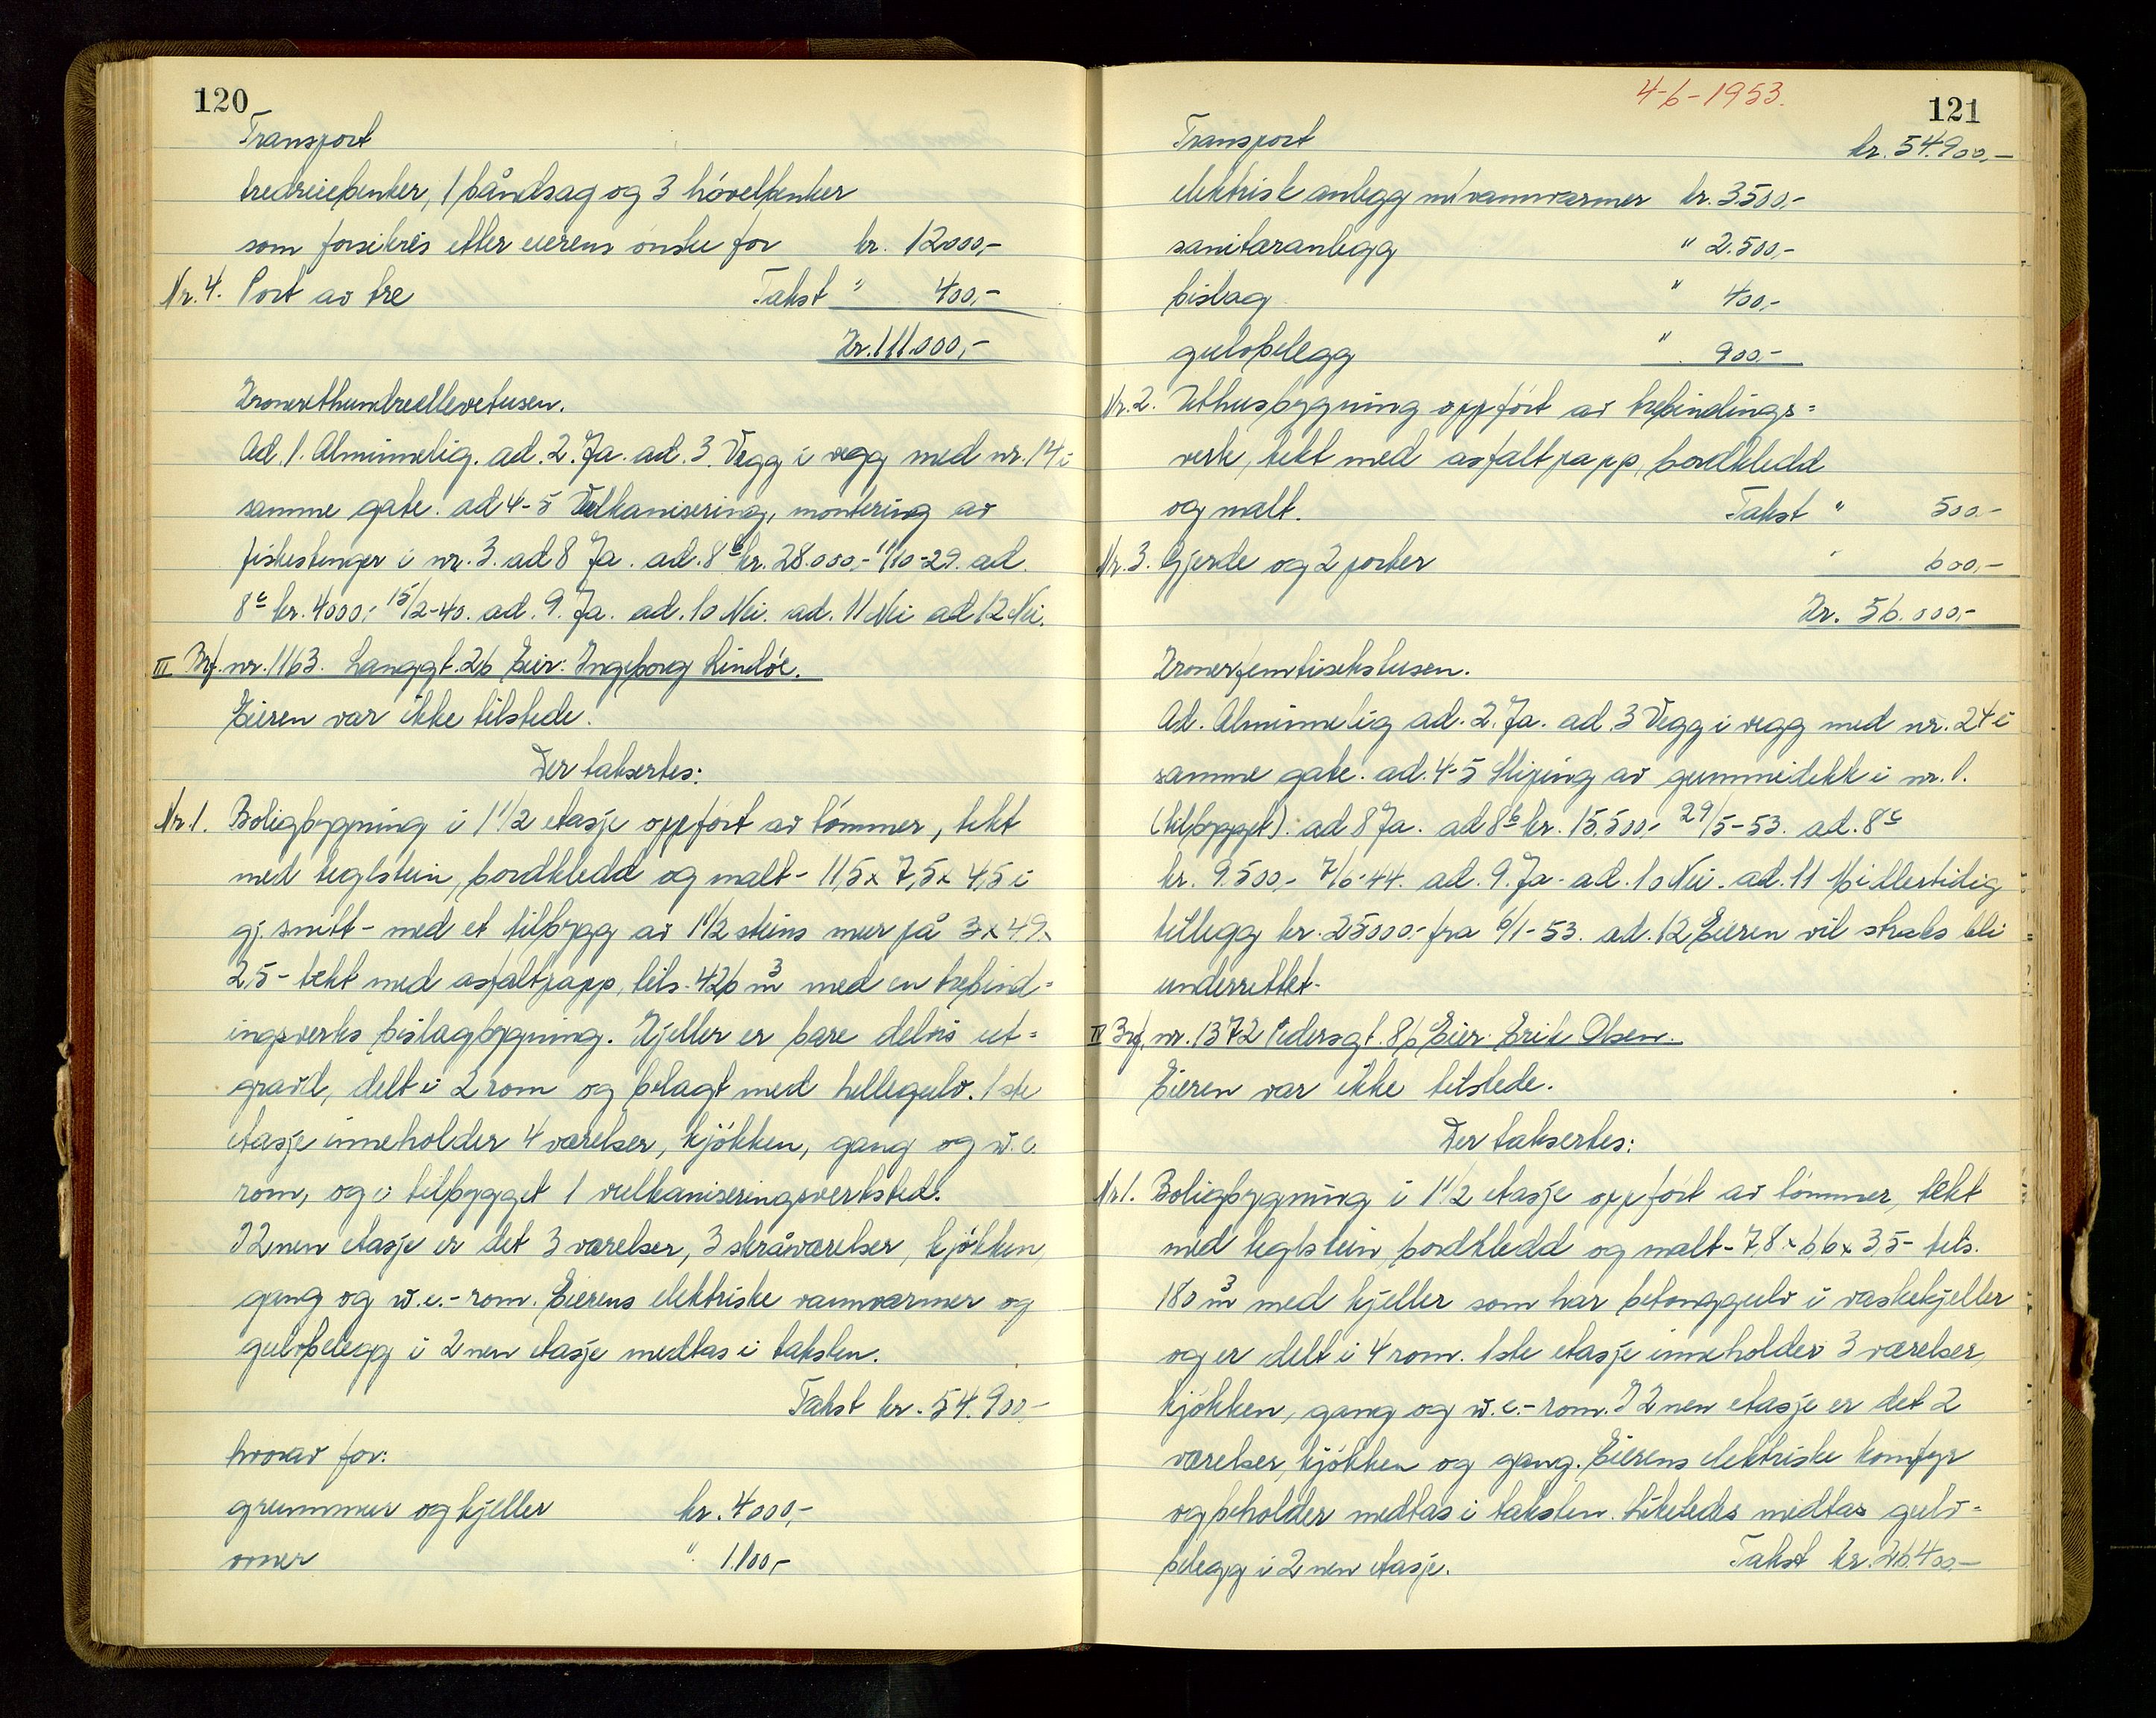 120
Transport
tredreiebenker, 1 båndsag og 3 høvelbenker
som forsikres etter eierens ønske for kr. 12000,-
Nr. 4. Port av tre Takst " 400,-
Kr. 111.000,-
Kronerethundreellevetusen.
Ad. 1. Almimnelig. ad. 2. Ja. ad. 3. Vegg i vegg med nr. 14 i
samme gate. ad 4-5 Vulkanisering, montering av
fiskestenger i nr. 3. ad 8 Ja. ad. 8b kr. 28.000,- 11/10-29. ad.
8c kr. 4000,- 15/2-40. ad. 9. Ja. ad. 10 Nei. ad. 11 Nei ad 12 Nei.
III Brf. nr. 1163. Langgt. 26 Eier: Ingeborg Lindöe.
Eieren var ikke tilstede.
Der taksertes:
Nr. 1. Boligbygning i 1 1/2 etasje oppført av tømmer, tekt
med teglstein, bordkledd og malt - 11,5 x 7,5 x 4,5 i
gj. snitt - med et tilbygg av 1 1/2 steins mur på 3 x 4.9 x
2,5 - tekt med asfaltpapp, tils. 426 m3 med en trebind=
ingsverks bislagbygning. Kjeller er bare delvis ut=
gravd, delt i 2 rom og belagt med hellegulv. 1ste
etasje inneholder 4 værelser, kjøkken, gang og w.c.
rom, og i tilbygget 1 vulkaniseringsverksted.
I 2nen etasje er det 3 værelser, 3 skråværelser, kjøkken,
gang og w.c.-rom. Eierens elektriske vannvarmer og
gulvbelegg i 2nen etasje medtas i taksten.
Takst kr. 54.900,-
hvorav for:
grunnmur og kjeller kr. 4000,-
ovner " 1.100,-
4-6-1953.
121
Transport kr. 54.900,-
elektrisk anlegg m/vannvarmer kr. 3500,-
sanitæranlegg " 2.500,-
bislag " 400,-
gulvbelegg " 900,-
Nr. 2. Uthusbygning oppført av trebindings=
verk, tekt med asfaltpapp, bordkledd
og malt. Takst " 500,-
Nr. 3. Gjerde og 2 porter " 600,-
Kr. 56.000,-
Kronerfemtisekstusen.
Ad. Almimnelig ad. 2. Ja. ad. 3 Vegg i vegg med nr. 24 i
samme gate. ad. 4-5 Sliping av gummidekk i nr. 1.
(tilbygget). ad 8 Ja. ad 8b kr. 15.500,- 29/5-53. ad. 8c
kr. 9.500,- 7/6-44. ad. 9. Ja. ad. 10 Nei. ad. 11 Midlertidig
tillegg kr. 25000,- fra 6/1-53. ad. 12 Eieren vil straks bli
underrettet.
IV Brf. nr. 1372 Pedersgt. 86 Eier: Erik Olsen.
Eieren var ikke tilstede.
Der taksertes:
Nr. 1. Boligbygning i 1 1/2 etasje oppført av tømmer, tekt
med teglstein, bordkledd og malt - 7,8 x 6,6 x 3,5 - tils.
180 m3 med kjeller som har betonggulv i vaskekjeller
og er delt i 4 rom. 1ste etasje inneholder 3 værelser,
kjøkken, gang og w.c.-rom. I 2nen etasje er det 2
værelser, kjøkken og gang. Eierens elektriske komfyr
og beholder medtas i taksten. Likeledes medtas gulv=
belegg i 2nen etasje. Takst kr. 26.400,-